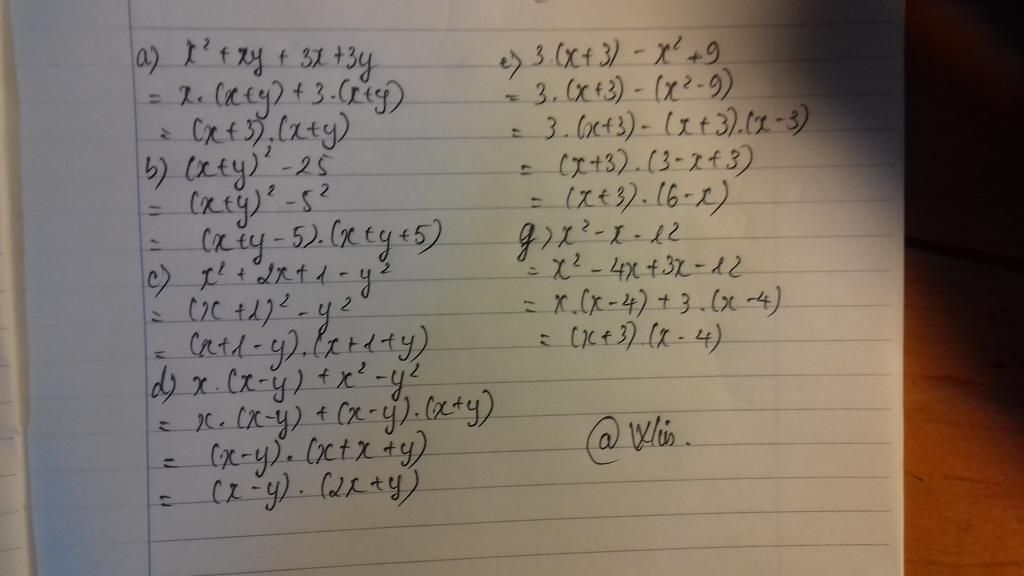 a) x² + xy + 3x + 3y
= x.(x+y) + 3.(x+y)
= (x+3).(x+y)
b) (x+y)² - 25
= (x+y)² - 5²
= (x+y-5).(x+y+5)
c) x² + 2x + 1 - y²
= (x+1)² - y²
= (x+1-y).(x+1+y)
d) x.(x-y) + x² - y²
= x.(x-y) + (x-y).(x+y)
= (x-y).(x+x+y)
= (x-y).(2x+y)
e) 3.(x+3) - x² + 9
= 3.(x+3) - (x² - 9)
= 3.(x+3) - (x+3).(x-3)
= (x+3).(3-x+3)
= (x+3).(6-x)
g) x² - x - 12
= x² - 4x + 3x - 12
= x.(x-4) + 3.(x-4)
= (x+3).(x-4)